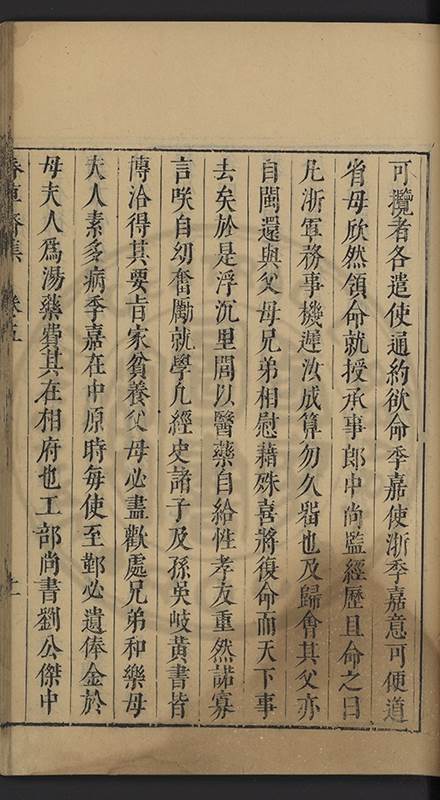 可攬者各遣使通約欲命季嘉使浙季嘉意可便道
省母欣然領命就授承事郎中尚監經歷且命之曰
凡浙軍務事機遲汝成算勿久留也及歸會其父亦
自閩還與父母兄弟相慰藉殊喜將復命而天下事
去矣於是浮沉里閭以醫藥自給性孝友重然諾寡
言咲自幼奮勵就學凡經史諸子及孫吳岐黃書皆
博洽得其要旨家貧養父母必盡歡處兄弟和樂母
夫人素多病季嘉在中原時每使至鄞必遺俸金於
母夫人爲湯藥費其在相府也工部尚書劉公傑中
春草齋集 卷五